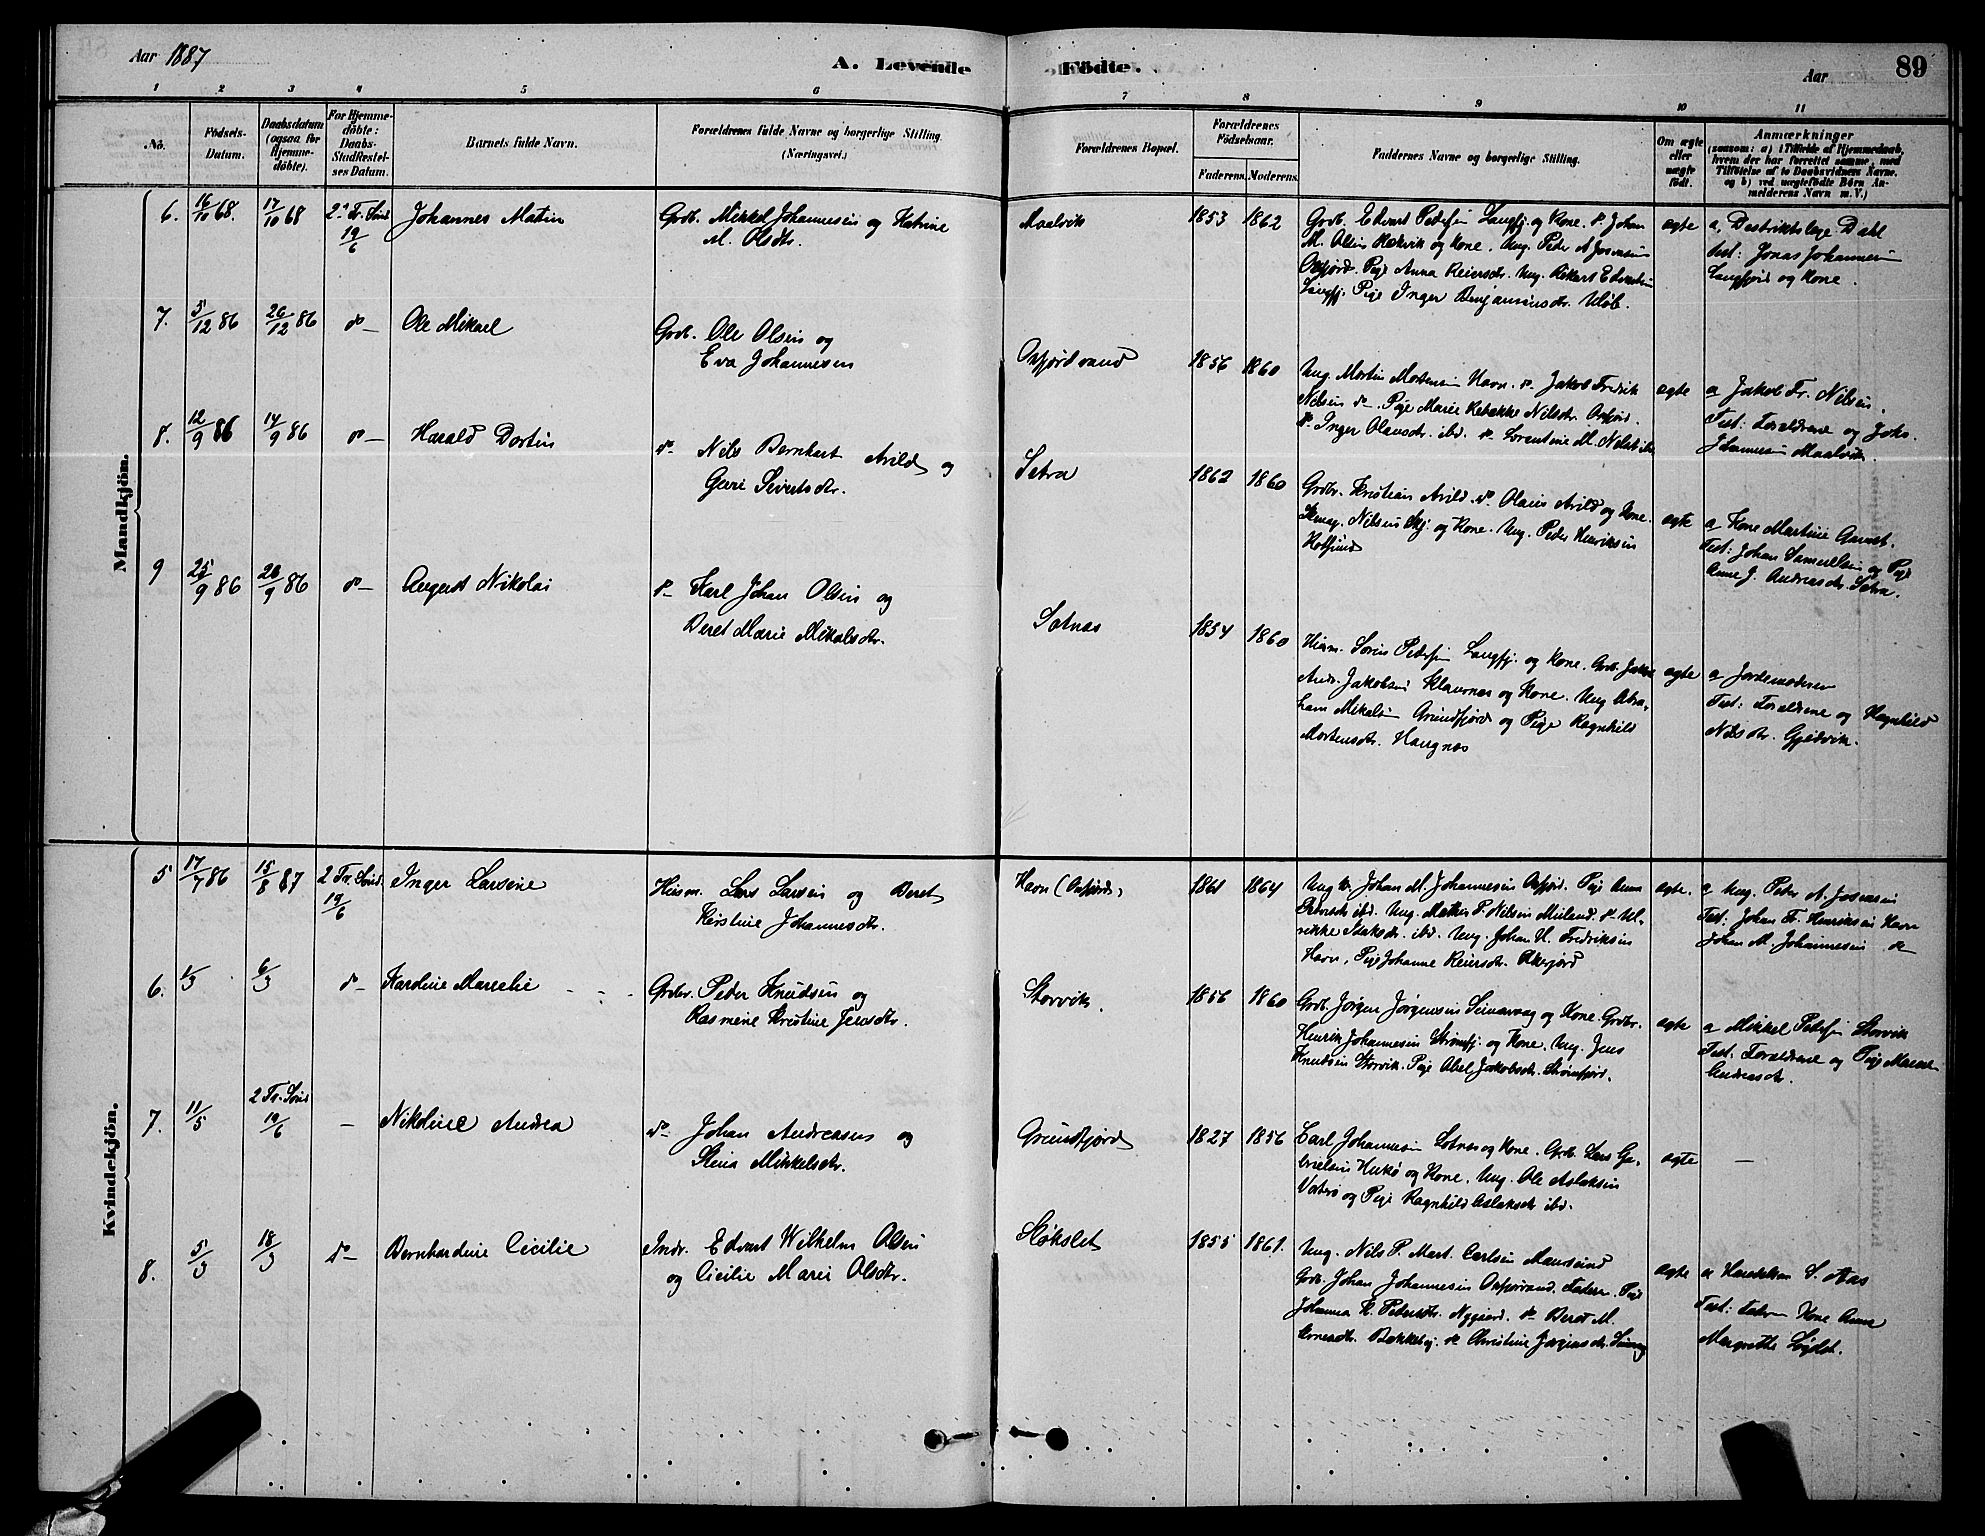 Aar 1887
A. Levende Födte.
Aar
89
1 2 3 4 5 6 7 8 9 10 11
No.
Födsels-Datum.
Daabsdatum (ogsaa for Hjemme-døbte).
For Hjemme-døbte: Daabs-Stadfæstel-ses Datum.
Barnets fulde Navn.
Forældrenes fulde Navne og borgerlige Stilling.
(Næringsvei.)
Forældrenes Bopæl.
Forældrenes Födselsaar.
Faderens. Moderens.
Faddernes Navne og borgerlige Stilling.
Om ægte eller uægte født.
Anmærkninger
(saasom: a) i Tilfælde af Hjemmedaab, hvem der har forrettet samme, med Tilføielse af to Daabsvidners Navne, og b) ved uægtefødte Børn Anmelderens Navn m. V.)
Mandkjön.
6. 16/10 68. 17/10 68 2. Tr. Sønd 19/6 Johannes Matin
Grdb. Mikkel Johannesen og Katrine
M. Olsdtr.
Maalvik 1853 1862
Grdb. Edvart Pedersen Langfj. og Kone. do Johan
M. Olsen og Kone. Ung. Peder A Josensen
Oxfjord. Pige Anna Reiersdtr. Ung. Rikart Edvardsen
Langfj. Pige Inger Benjaminsdtr. Uløb.
ægte
a, Destriktslæge Dahl
test: Jonas Johannesen
Langfjord og Kone.
7. 5/12 86 26/12 86 do — Ole Mikael
Grdb. Ole Olsen og
Eva Johannesen
Oxfjordvand 1856 1860
Ung Martin Mortensen Havn. do Jakob Fredrik
Nilsen do. Pige Marie Rebakke Nilsdtr. Oxfjord.
do Inger Olausdtr. ibd. do Lorentine M. Nilsdtr ibd
ægte
a Jakob Fr. Nilsen.
Test: Forældrene og Johs.
Johannesen Maalvik.
8. 12/9 86 14/9 86 do — Harald Dortin
do Nils Bernhart Arild og
Gjeri Sivertsdtr.
Setra 1862 1860
Grdbr. Kristian Arild. do Olaus Arild og Kone.
Nilsens Skj. og Kone. Ung. Peder Henriksen
ægte
a Kone Martine
Test: Johan Samuelsen og Pige
Anne J. Andreasdtr. Setra.
9 25/9 86 28/9 86 do — August Nikolai
do Karl Johan Olsen og
Beret Marie Mikalsdtr.
Sotnæs 1854 1860
Husm. Søren Pedersen Langfj. og Kone. Grdb. Jakob
Andr. Jakobsen Klauvnes og Kone. Ung Abra-
ham Mikalsen Grundfjord og Pige Ragnhild
Mortensdtr. Haugnæs
ægte
a Jordemoderen
Test: Forældrene og Ragnhild
Nilsdtr. Gjedvik.
Kvindekjön.
5 17/7 86 15/8 87 2 Tr. Sønd. 19/6 Inger Larsine
Husm. Lars Larsen og Beret
Kirstine Johannesdtr.
Havn (Oxfjord) 1861 1864
Ung k. Johan M. Johannesen Oxfjord. Pige Anna
ibd. Ung. Mathis P. Nilsen Meiland. do Ul-
rikke Isaksdtr. ibd. Ung. Johan H. Fredriksen
Havn, Pige Johanne Reiersdtr.
ægte.
a Ung. Peter A. Josensen
Test: Johan Fr. Henriksen Havn
Johan M. Johannesen do
6. 1/3 6/3 do — Kardine Marcelie
Grdbr. Peder Knudsen og
Rasmine Kristine Jensdtr.
Storvik. 1856 1860
Grdb. Jørgen Jørgensen Seinavaag og Kone. Grdbr.
Henrik Johannesen Strømfj. og Kone. Ung. Jens
Knudsen Storvik. Pige Abel Jakobsdtr. Strømfjord.
ægte
a Mikkel Pedersen Storvik
Test: Forældrene og Pige Maren
Andreasdtr.
7. 11/5 2 Tr. Sønd 19/6 — Nikoline Andrea
do Johan Andreasen og
Stina Mikkelsdtr.
Grundfjord 1827 1856
Carl Johannesen Sotnæs og Kone. Grdb. Lars Ga-
brielsen Hukø og Kone. Ung. Ole Aslaksen
Vaterø og Pige Ragnhild Aslaksdtr ibd.
ægte —
8. 5/3 18/3 do — Bernhardine Cicilie
Indr. Edvart Wilhelm Olsen
og Cicilie Marie Olsdtr.
Stokslet 1855 1861.
Ung. Nils P. Mart. Carlsen Maursund
Grdb. Johan Johannesen Oxfjordvand. Faderen. Pige
Johanna K. Pedersdtr. Nygaard. do Beret M.
Bakkeby. do Christine Jørgensdtr.
ægte
a Handelsm S. Aas
Test: Faderen Kone Anne
Margrethe